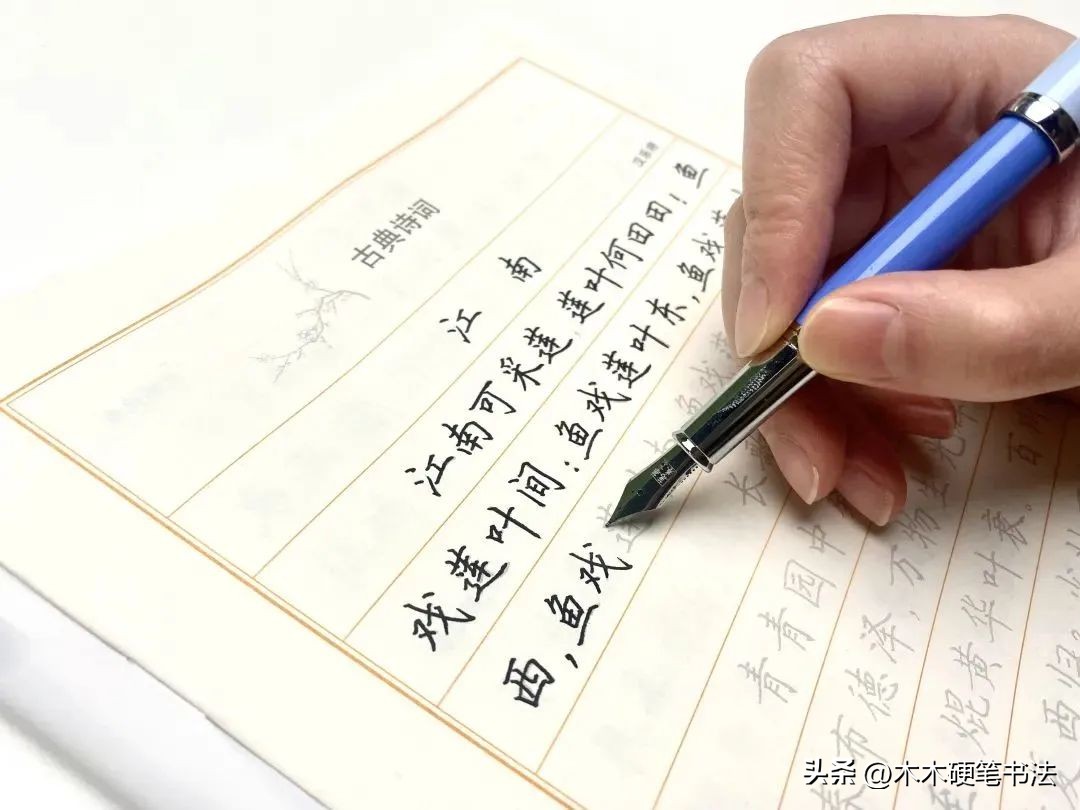 古典诗词
江南
汉乐府
江南可采莲,莲叶何田田!鱼
戏莲叶间:鱼戏莲叶东,鱼戏莲
西,鱼戏莲 南,鱼戏莲
长
青青园中
布德泽,万物生光
焜黄华叶衰。百
西归。少
头条 @木木硬笔书法